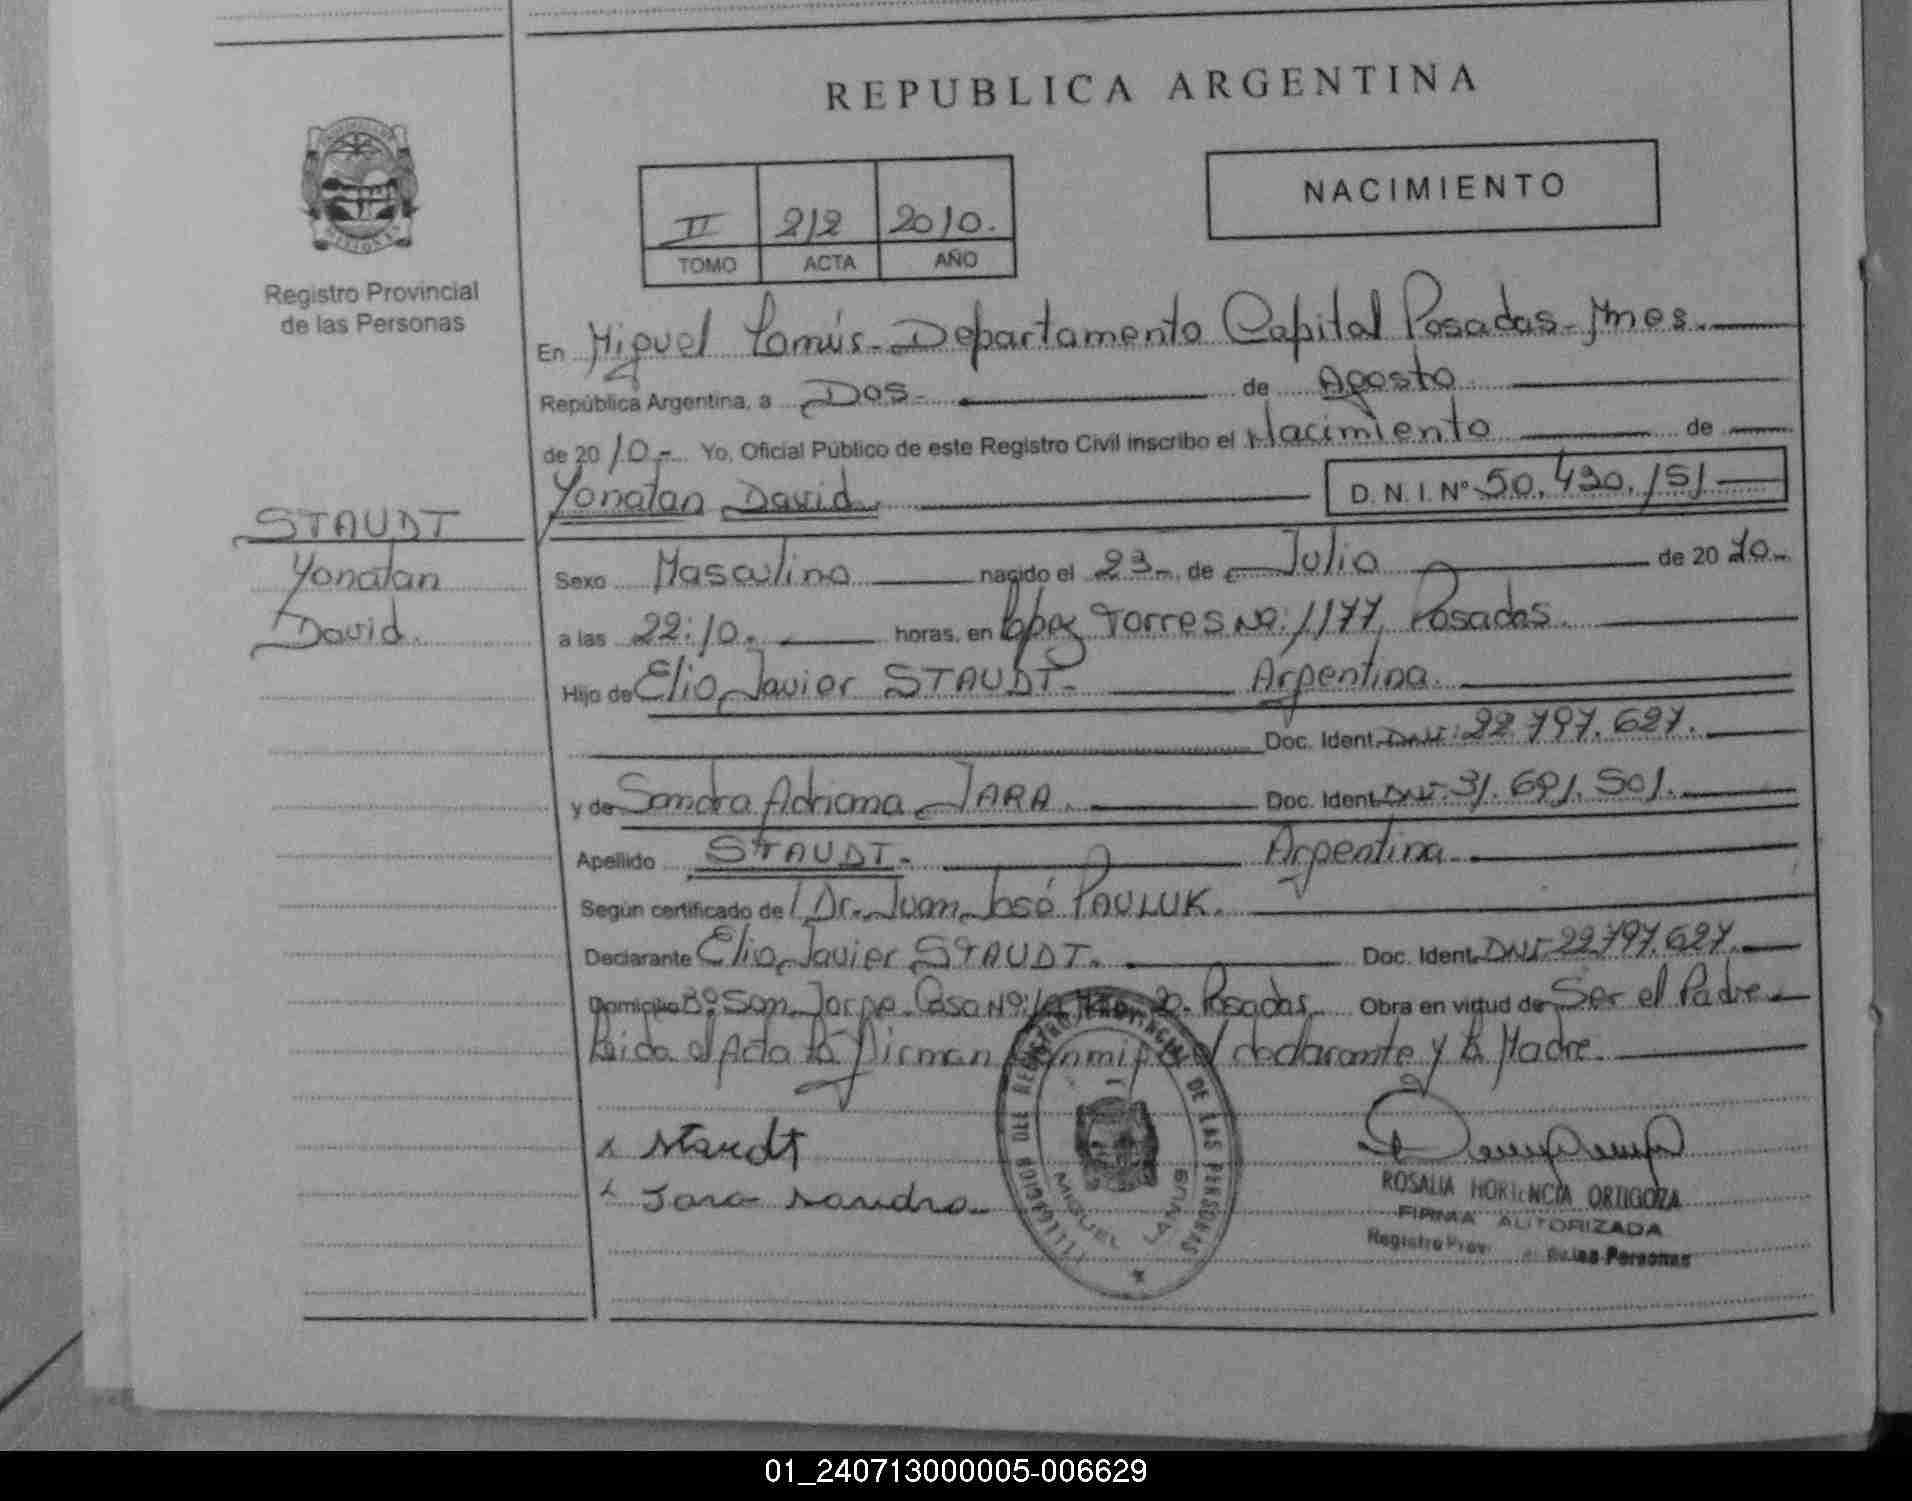 REPUBLICA ARGENTINA
NACIMIENTO
II 212 2010.
TOMO ACTA AÑO
Registro Provincial
de las Personas
En Miguel Lanús - Departamento Capital Posadas - Mnes.
República Argentina, a Dos - de Agosto
de 2010 - Yo, Oficial Público de este Registro Civil inscribo el Nacimiento de
Yonatan David. D. N. I. Nº 50.430.151
STAUDT
Yonatan
David.
Sexo Masculino nacido el 23 - de Julio de 2010 -
a las 22:10. horas, en López Torres Nº: 1177, Posadas.
Hijo de Elio Javier STAUDT - Argentina.
Doc. Ident. DNI: 22.797.627.
y de Sandra Adriana JARA. Doc. Ident. DNI: 31.691.501.
Apellido STAUDT - Argentina.
Según certificado de Dr. Juan José PAULUK.
Declarante Elio Javier STAUDT. Doc. Ident. DNI 22.797.627.
Domicilio Bº San Jorge Casa Nº: Posadas. Obra en virtud de Ser el Padre
Leida el Acta la firman el declarante y la Madre.
x Staudt
x Jara Sandra
DEL REGISTRO PROVINCIAL DE LAS PERSONAS
MIGUEL LANUS
ROSALIA HORTENCIA ORTIGOZA
FIRMA AUTORIZADA
Registro Prov. de las Personas
01_240713000005-006629